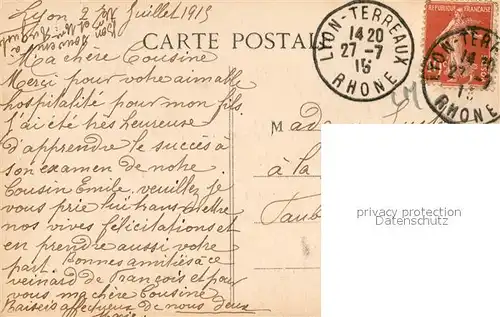 Lyon 2 Juillet 1915
CARTE POSTAL
LYON-TERREAUX
14 20
27-7
15
RHONE
LYON-TERR
RHONE
Ma chère Cousine
Merçi pour votre aimable
hospitalité pour mon fils.
J'ai été très heureuse
d'apprendre le succès à
son examen de notre
Cousin Emile. veuillez je
vous prie lui transmettre
nos vives félicitations et
en prendre aussi votre
part Bonnes amitiés à ce
veinard de François et pour
vous ma chère Cousine
Baisers affectueux de nous deux
Mada
à la
Taub
privacy protection
Datenschutz